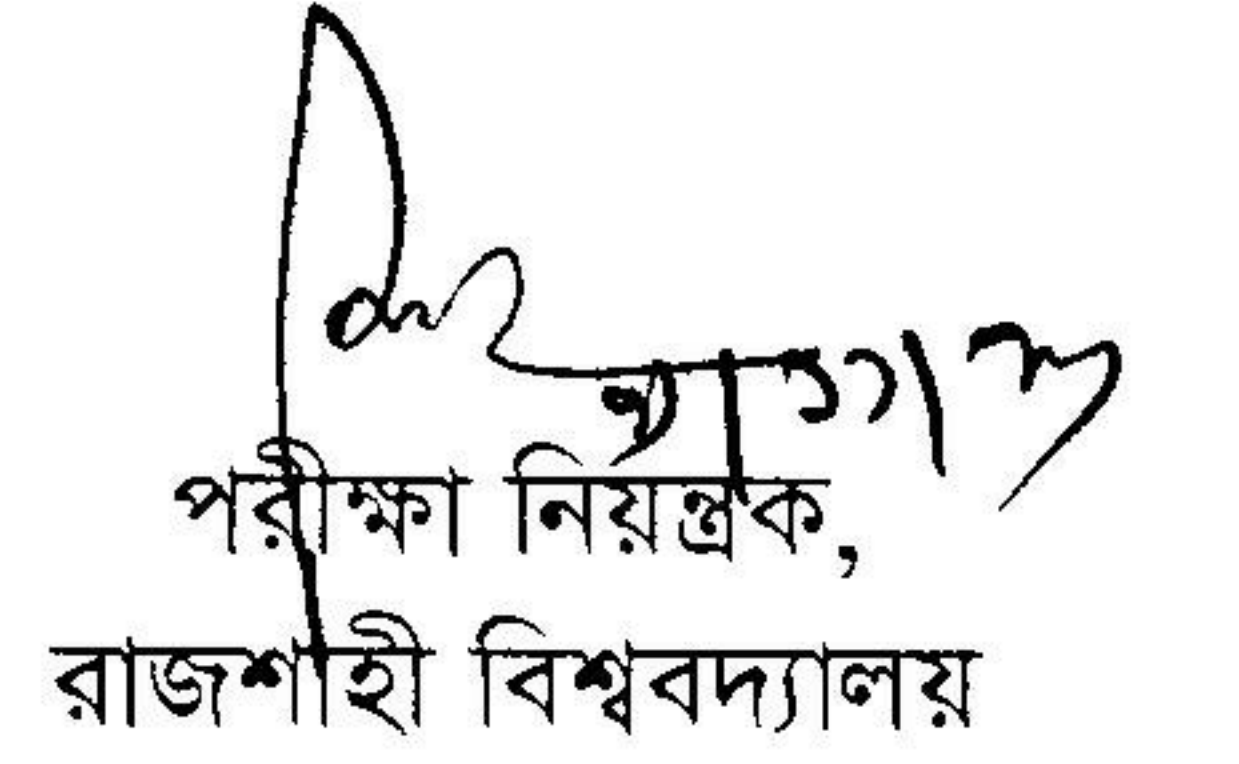 পরীক্ষা নিয়ন্ত্রক,
রাজশাহী বিশ্ববদ্যালয়